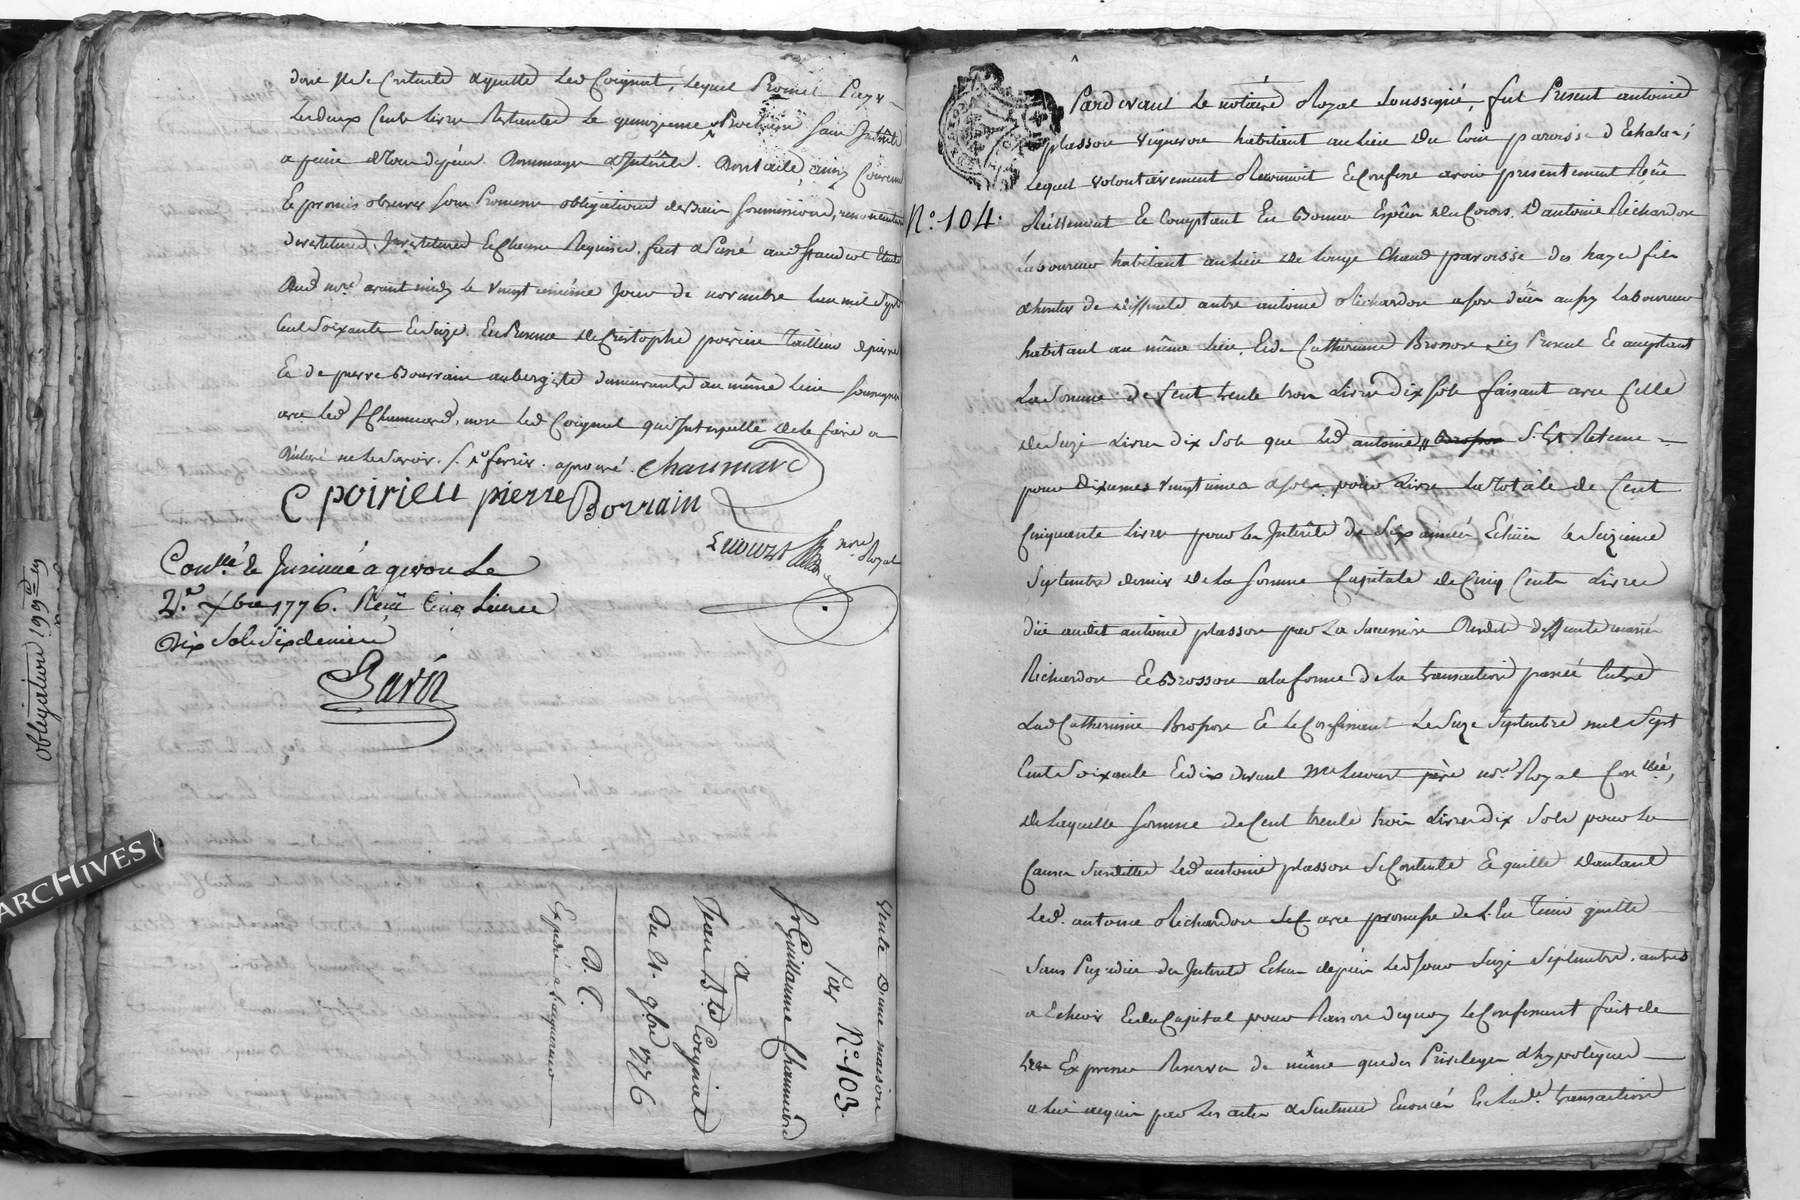 dont il se Contente aquitte Led Coignet, lequel Promet Payer
Les deux Cents livres Restantes le quinzieme Prochain sans Intérêts
a peine de tous depens dommages & Intérêts. dont acte, ainsi Convenu
Et promis observer sous Promesse obligations de Biens soumissions, renonciations
devestitures, Investitures & Clauses Requises. fait & Passé aud
Aud nore. avant midy le vingt unième Jour de novembre L'an mil Sept
Cent Soixante & Seize. En Presence de Cristophe poirieu Tailleur de pierre
Et de pierre Bourrain aubergiste demeurants au même lieu soussignés
avec Led Sr. Chaumard, non Led Coignet qui Interpellé de le faire a
déclaré ne le Savoir. aprouvé. Chaumard
C poirieu pierre Borrain
nore Royal
Conllé & Insinué a le
2e. Xbre 1776. Reçu Cinq Livres
dix Sols Six deniers
Obligation 199
ARCHIVES
Vente d'une maison
Par N°. 103.
Sr. Guillaume Chaumard
a
Jean Bte Coignet
Du 21. 9bre 1776
D. C.
Expedié a l'acquereur
Pardevant le notaire Royal Soussigné, fut Present antoine
plasson vigneron habitant au lieu du Coin paroisse d'Echalas;
Lequel volontairement Reconnoit & Confesse avoir presentement Reçu
N°. 104.
Réellement Et Comptant En Bonnes Espèces du Cours, D'antoine Richardon
Laboureur habitant au lieu de Longe Chaud paroisse des hayes fils
& heritier de deffunts autre antoine Richardon a son décès aussy Laboureur
habitant au même lieu, & de Catherine Brosson icy Present & acceptant
La Somme de Cent trente trois Livres dix sols faisant avec Celle
de Seize Livres dix Sols que Led antoine S. Est Retenue
pour dixiemes vingtiemes & sols pour Livre La Totale de Cent
Cinquante livres pour les Intérêts de Six années Echües le Seizieme
Septembre dernier de la Somme Capitale de Cinq Cents Livres
düe audit antoine plasson par la Succession desdits deffunts mariés
Richardon & Brosson a la forme de la transaction passée Entre
Lad Catherine Brosson & le Confessant Le Seize Septembre mil Sept
Cent Soixante & dix devant Me père nore Royal Conllé,
de Laquelle somme de Cent trente trois Livres dix Sols pour les
Causes Susdittes Led antoine plasson se Contente & quitte d'autant
Led. antoine Richardon avec promesse de L'En Tenir quitte
Sans Prejudice des Intérêts Echus depuis Led Jour Seize Septembre, autres
a Echeoir & du Capital pour Raison de quoy le Confessant fait de
tres Expresses Reserves de même que des Privileges & hypotèques
a lui acquis par les actes & Sentences Enoncés En lade. transaction